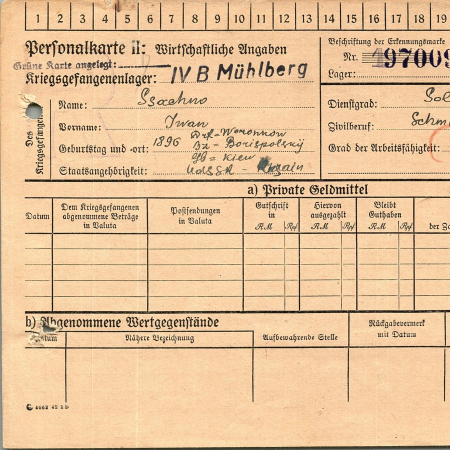 1 2 3 4 5 6 7 8 9 10 11 12 13 14 15 16 17 18 19
Personalkarte II: Wirtschaftliche Angaben
Grüne Karte angelegt:
Kriegsgefangenenlager: IV B Mühlberg
Beschriftung der Erkennungsmarke
Nr. 497009
Lager:
Des Kriegsgefangenen
Name: Ssachno
Vorname: Iwan
Geburtstag und -ort: 1896 Drf-Woronkow
Bz-Borispolskij
Gb = Kiew
Staatsangehörigkeit: UdSSR - Ukrain
Dienstgrad: Sol
Zivilberuf: Schm
Grad der Arbeitsfähigkeit:
a) Private Geldmittel
Datum
Dem Kriegsgefangenen abgenommene Beträge in Valuta
Postsendungen in Valuta
Gutschrift in
RM Rpf
Hiervon ausgezahlt
RM Rpf
Bleibt Guthaben
RM Rpf
der Za
b) Abgenommene Wertgegenstände
Datum
Nähere Bezeichnung
Aufbewahrende Stelle
Rückgabevermerk mit Datum